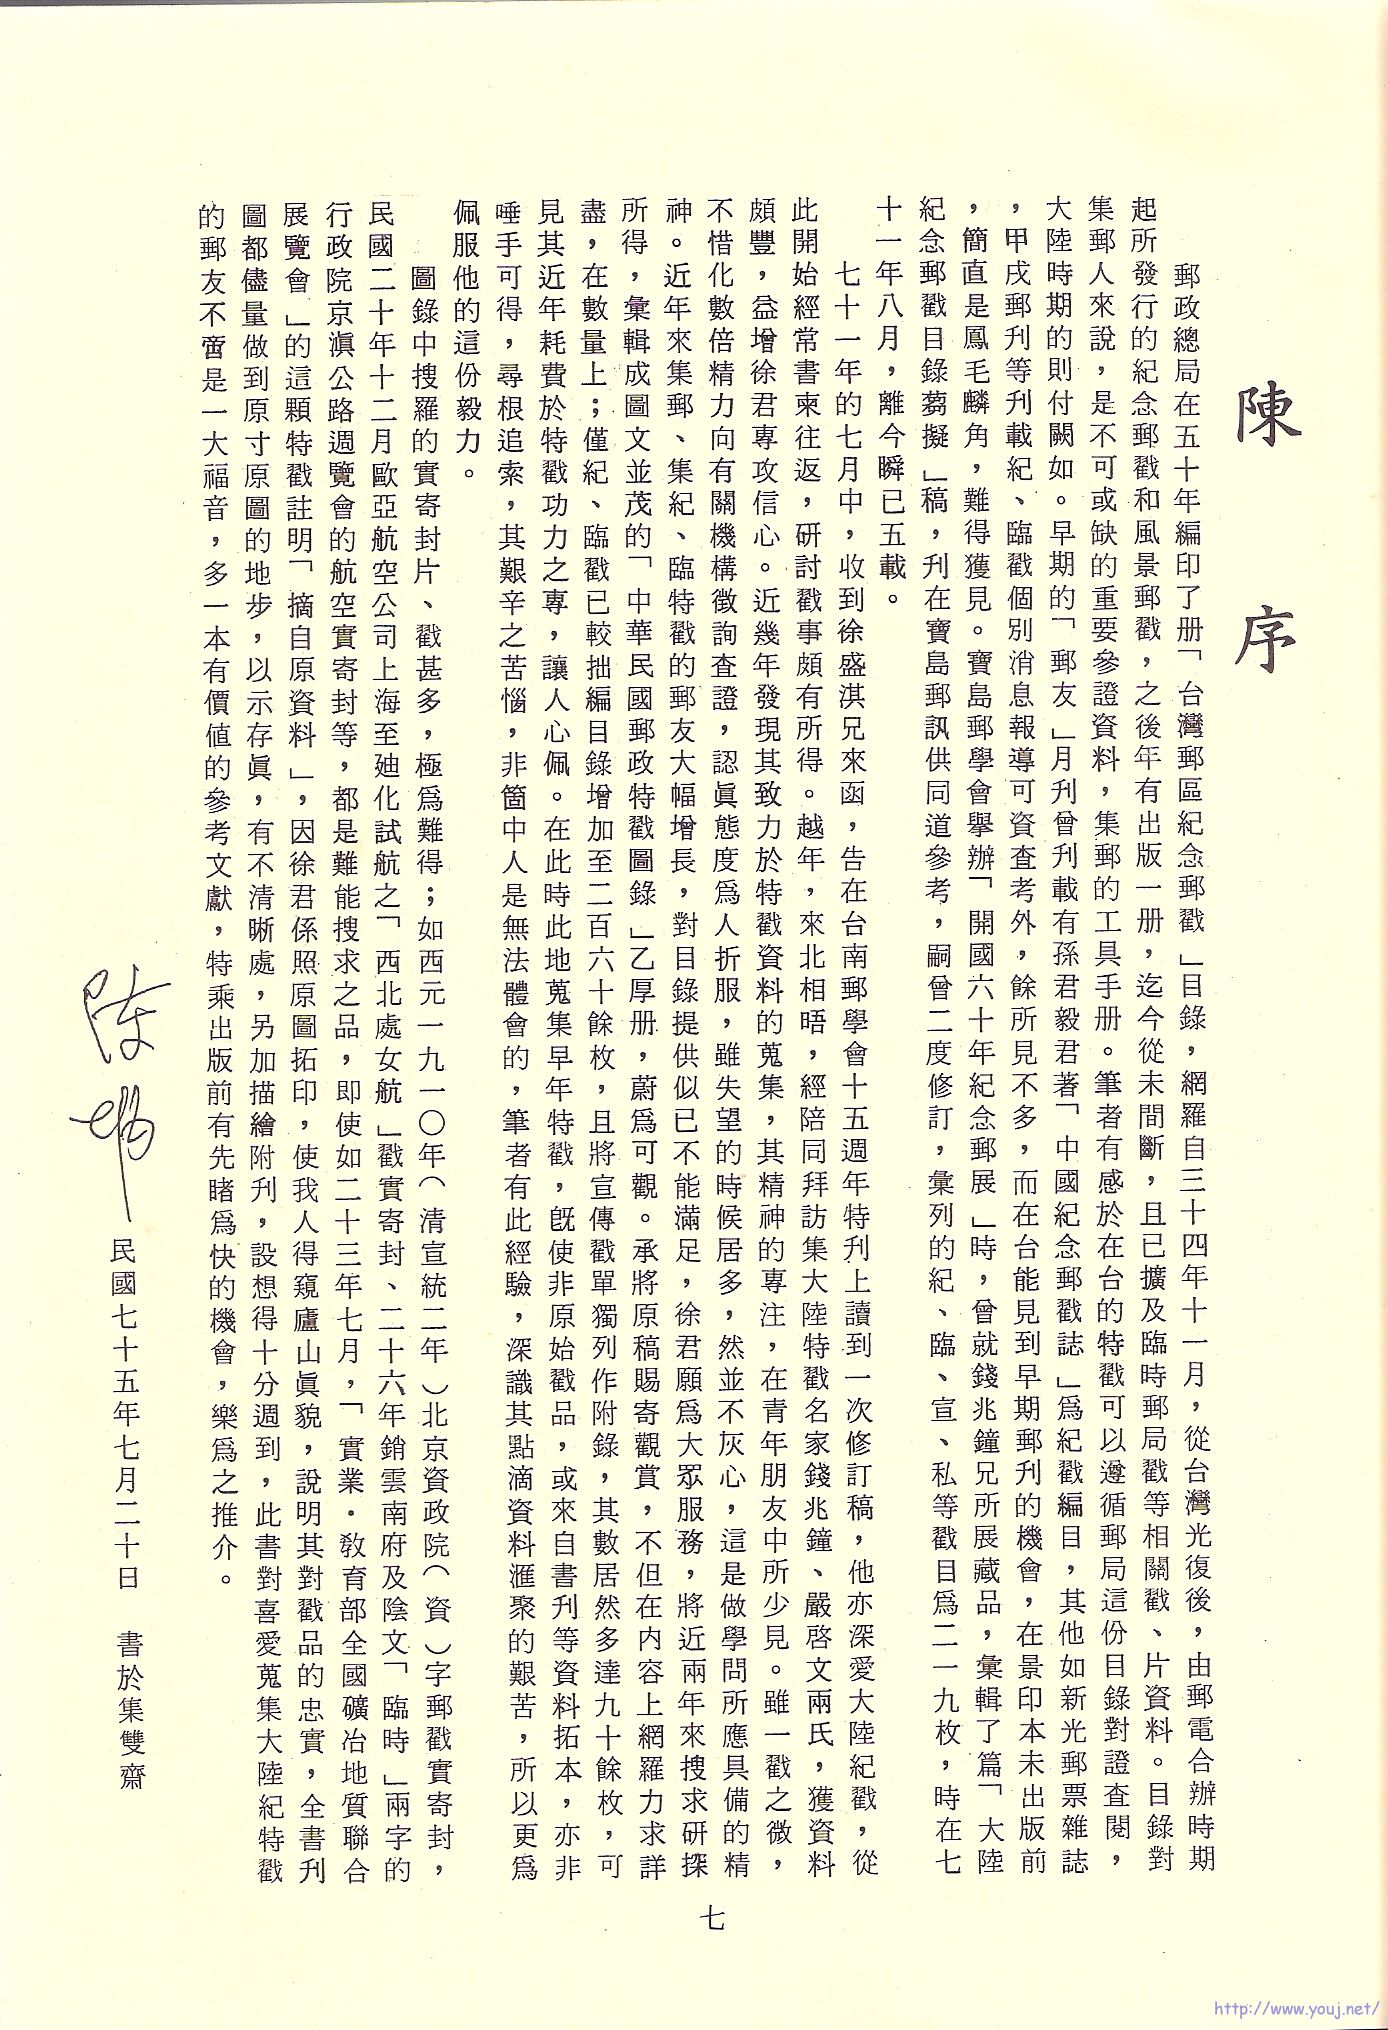 陳序
郵政總局在五十年編印了册「台灣郵區紀念郵戳」目錄，網羅自三十四年十一月，從台灣光復後，由郵電合辦時期
起所發行的紀念郵戳和風景郵戳，之後年有出版一册，迄今從未間斷，且已擴及臨時郵局戳等相關戳、片資料。目錄對
集郵人來說，是不可或缺的重要參證資料，集郵的工具手册。筆者有感於在台的特戳可以遵循郵局這份目錄對證查閱，
大陸時期的則付闕如。早期的「郵友」月刊曾刊載有孫君毅君著「中國紀念郵戳誌」爲紀戳編目，其他如新光郵票雜誌
，甲戌郵刊等刊載紀、臨戳個別消息報導可資查考外，餘所見不多，而在台能見到早期郵刊的機會，在景印本未出版前
，簡直是鳳毛麟角，難得獲見。寶島郵學會擧辦「開國六十年紀念郵展」時，曾就錢兆鐘兄所展藏品，彙輯了篇「大陸
紀念郵戳目錄蒭擬」稿，刊在寶島郵訊供同道參考，嗣曾二度修訂，彙列的紀、臨、宣、私等戳目爲二一九枚，時在七
十一年八月，離今瞬已五載。
七十一年的七月中，收到徐盛淇兄來函，告在台南郵學會十五週年特刊上讀到一次修訂稿，他亦深愛大陸紀戳，從
此開始經常書柬往返，研討戳事頗有所得。越年，來北相晤，經陪同拜訪集大陸特戳名家錢兆鐘、嚴啓文兩氏，獲資料
頗豐，益增徐君專攻信心。近幾年發現其致力於特戳資料的蒐集，其精神的專注，在青年朋友中所少見。雖一戳之微，
不惜化數倍精力向有關機構徵詢查證，認眞態度爲人折服，雖失望的時候居多，然並不灰心，這是做學問所應具備的精
神。近年來集郵、集紀、臨特戳的郵友大幅增長，對目錄提供似已不能滿足，徐君願爲大眾服務，將近兩年來搜求研探
所得，彙輯成圖文並茂的「中華民國郵政特戳圖錄」乙厚册，蔚爲可觀。承將原稿賜寄觀賞，不但在内容上網羅力求詳
盡，在數量上；僅紀、臨戳已較拙編目錄增加至二百六十餘枚，且將宣傳戳單獨列作附錄，其數居然多達九十餘枚，可
見其近年耗費於特戳功力之專，讓人心佩。在此時此地蒐集早年特戳，旣使非原始戳品，或來自書刊等資料拓本，亦非
唾手可得，尋根追索，其艱辛之苦惱，非箇中人是無法體會的，筆者有此經驗，深識其點滴資料滙聚的艱苦，所以更爲
佩服他的這份毅力。
圖錄中搜羅的實寄封片、戳甚多，極爲難得；如西元一九一〇年（清宣統二年）北京資政院（資）字郵戳實寄封，
民國二十年十二月歐亞航空公司上海至廸化試航之「西北處女航」戳實寄封、二十六年銷雲南府及陰文「臨時」兩字的
行政院京滇公路週覽會的航空實寄封等，都是難能搜求之品，即使如二十三年七月，「實業．敎育部全國礦冶地質聯合
展覽會」的這顆特戳註明「摘自原資料」，因徐君係照原圖拓印，使我人得窺廬山眞貌，說明其對戳品的忠實，全書刊
圖都儘量做到原寸原圖的地步，以示存眞，有不清晰處，另加描繪附刊，設想得十分週到，此書對喜愛蒐集大陸紀特戳
的郵友不啻是一大福音，多一本有價値的參考文獻，特乘出版前有先睹爲快的機會，樂爲之推介。
民國七十五年七月二十日　書於集雙齋
七
http://www.youj.net/